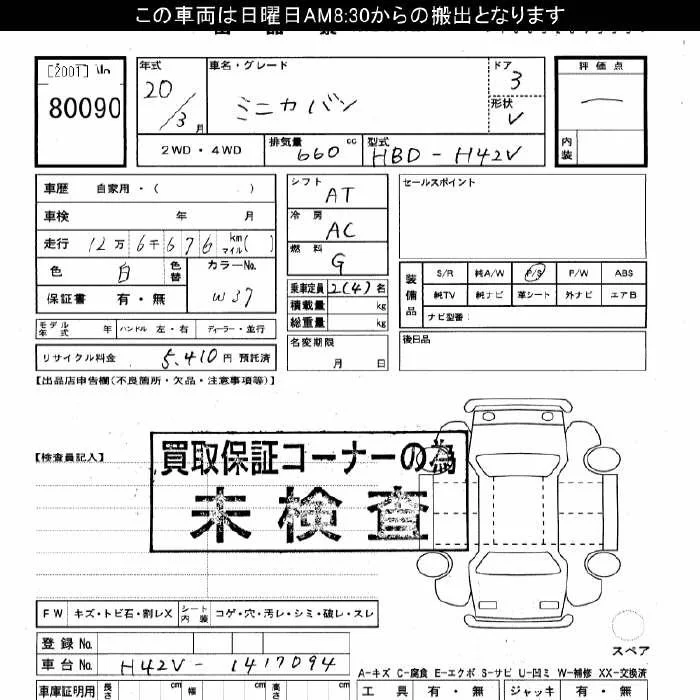 この車両は日曜日AM8:30からの搬出となります
[2001]
80090
年式
20/3月
車名・グレード
ミニカバン
ドア
3
形状
V
評価点
—
内装
2WD・4WD
排気量 660 cc
型式 HBD-H42V
車歴 自家用・( )
車検 年 月
走行 12万6千676 km マイル( )
色 白 色替
カラーNo. W37
保証書 有・無
モデル年式 年 ハンドル 左・右 ディーラー・並行
リサイクル料金 5,410円 預託済
シフト AT
冷房 AC
燃料 G
乗車定員 2(4)名
積載量 kg
総重量 kg
名変期限
月 日
セールスポイント
装備品
S/R 純A/W P/S P/W ABS
純TV 純ナビ 革シート 外ナビ エアB
ナビ型番:
後日品
【出品店申告欄(不良箇所・欠品・注意事項等)】
【検査員記入】
買取保証コーナーの為
未検査
FW キズ・トビ石・割レX シート内装 コゲ・穴・汚レ・シミ・破レ・スレ
登録No.
車台No. H42V-1417094
車庫証明用 長さ cm 幅 cm 高さ cm
スペア
A-キズ C-腐食 E-エクボ S-サビ U-凹ミ W-補修 XX-交換済
工具 有・無 ジャッキ 有・無